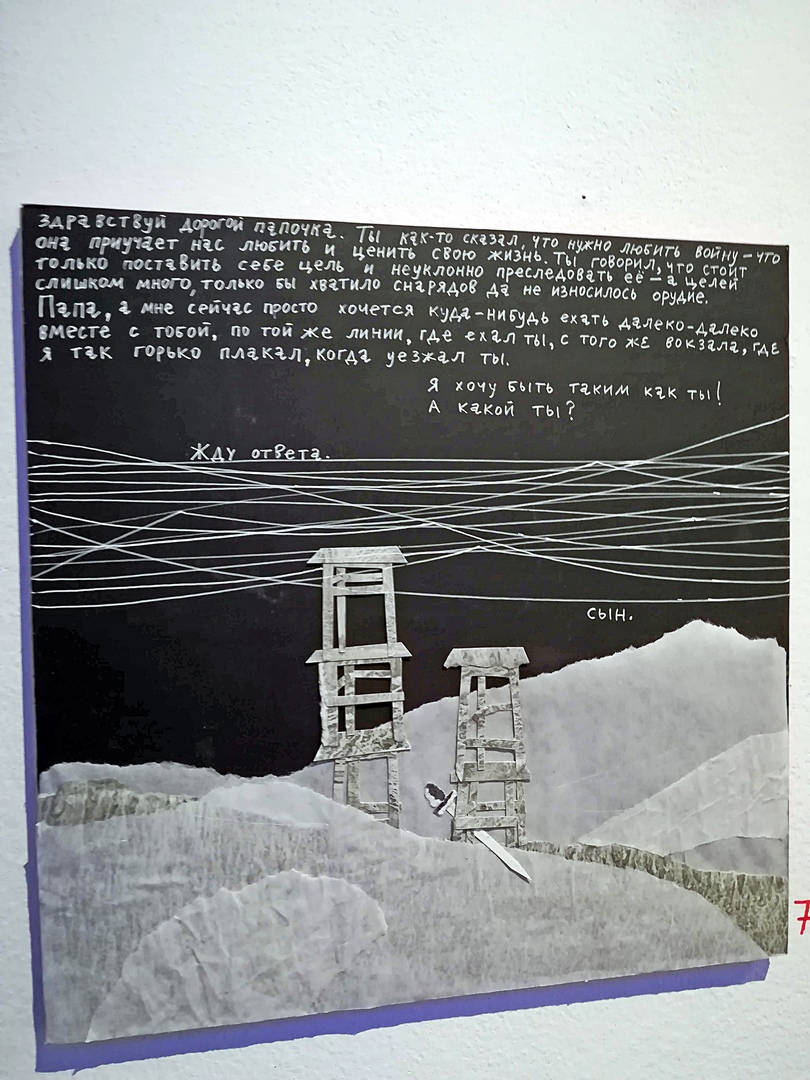 Здравствуй дорогой папочка. Ты как-то сказал, что нужно любить войну – что
она приучает нас любить и ценить свою жизнь. Ты говорил, что стоит
только поставить себе цель и неуклонно преследовать её – а целей
слишком много, только бы хватило снарядов да не износилось орудие.
Папа, а мне сейчас просто хочется куда-нибудь ехать далеко-далеко
вместе с тобой, по той же линии, где ехал ты, с того же вокзала, где
я так горько плакал, когда уезжал ты.
Я хочу быть таким как ты!
А какой ты?
Жду ответа.
сын.
7